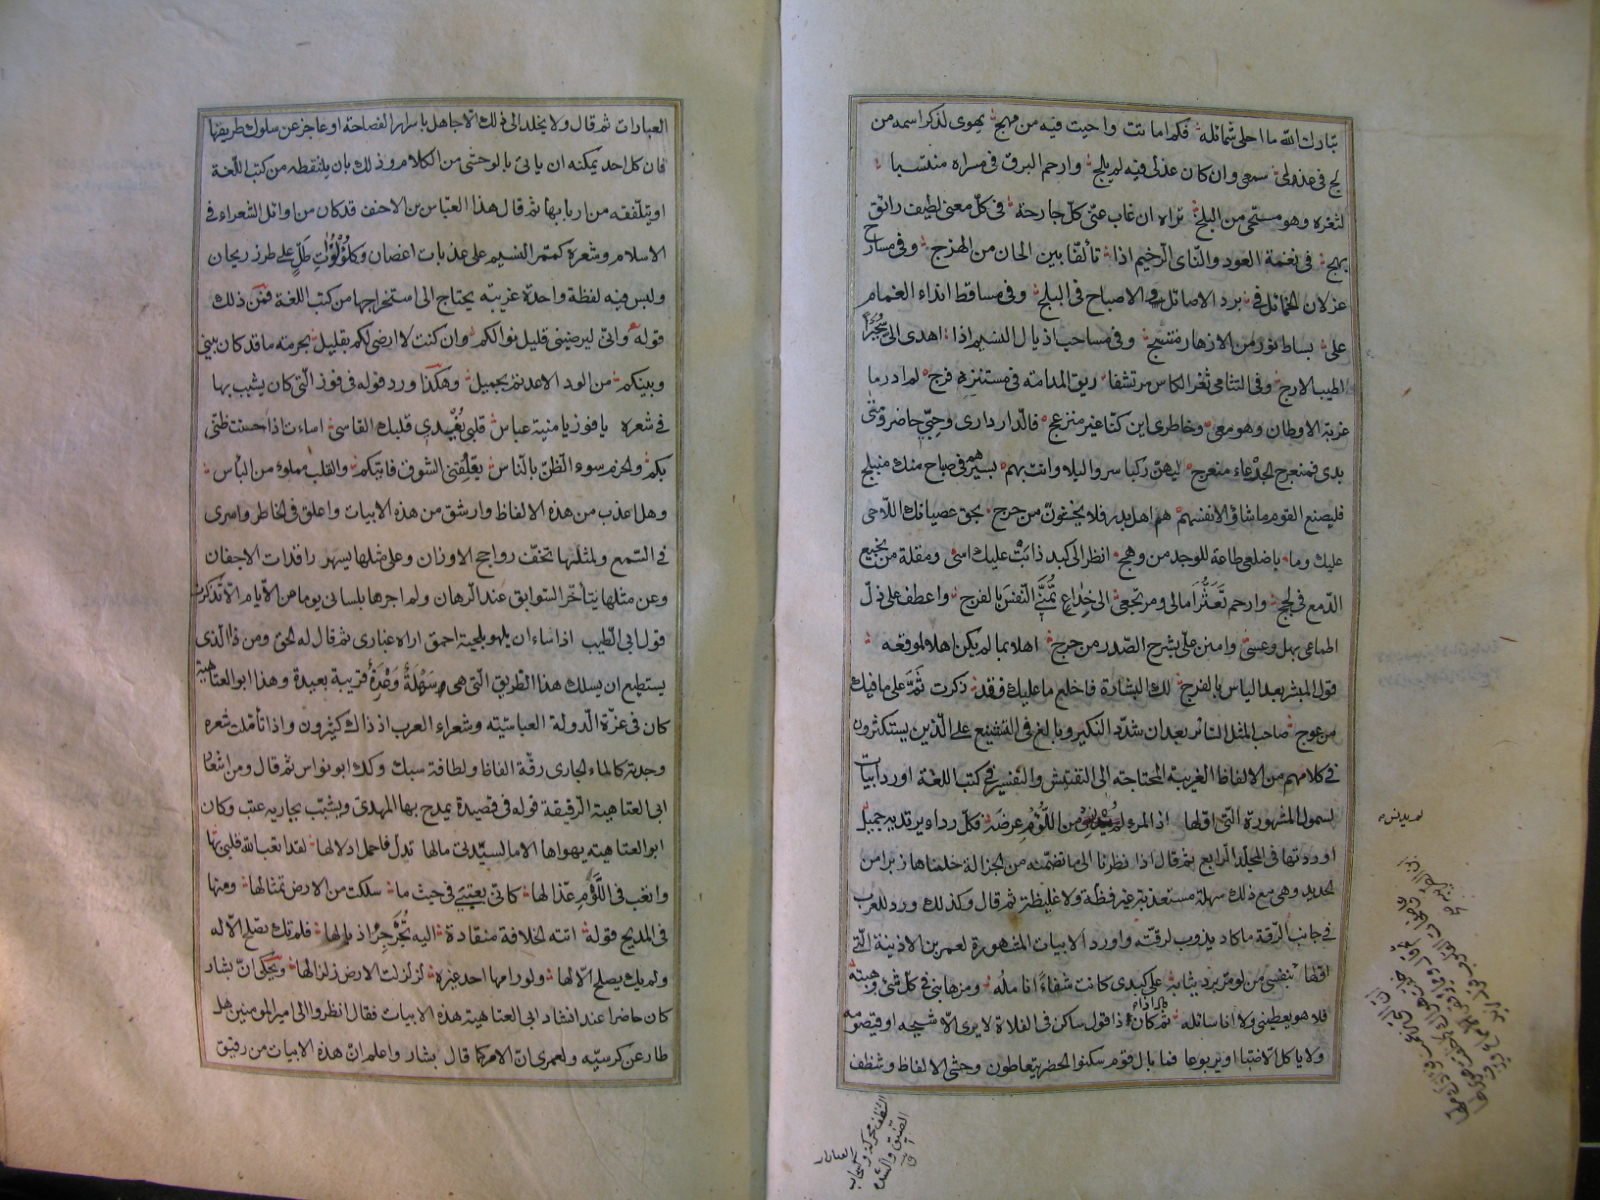 تبارك الله ما احلى شمائله فكم اماتت واحيت فيه من مهج يهوى لذكر اسمه من
لج في عذلي سمعي وان كان عذلي فيه لم يلج وارحم البرق في مسراه منتسبا
لثغره وهو مستحى من البلج تراه ان غاب عنى كل جارحة في كل معنى لطيف رائق
بهج في نغمة العود والناى الرخيم اذا تألفا بين الحان من الهزج وفي مسارح
غزلان الخمائل في برد الاصائل والاصباح في البلج وفي مساقط انداء الغمام
على بساط نور من الازهار منتسج وفي مساحب اذيال النسيم اذا اهدى الى سحيرا
الطيب الارج وفي التثامى ثغر الكاس مرتشفا ريق المدامة في مستنزه فرج لم ادر ما
غربة الاوطان وهو معى وخاطرى اين كنا غير منزعج فالدار دارى وحبى حاضر ومتى
بدى فمنعرج الجرعاء منعرجى ليهن ركبا سروا ليلا وانت بهم بسيرهم في صباح منك منبلج
فليصنع القوم ما شاؤا لانفسهم هم اهل بدر فلا يخشون من حرج بحق عصيانك اللاحى
عليك وما باضلعى طاعة للوجد من وهج انظر الى كبد ذابت عليك اسى ومقلة من نجيع
الدمع في لجج وارحم تعثر امالى ومرتجعى الى خداع تمنى النفس بالفرج واعطف على ذل
اطماعى بهل وعسى وامنن على بشرح الصدر من حرج اهلا بما لم يكن اهلا لموقعه
قول المبشر بعد الياس بالفرج لك البشارة فاخلع ما عليك فقد ذكرت ثم على ما فيك
من عوج صاحب المثل السائر بعد ان شدد النكير وبالغ في التشنيع على الذين يستكثرون
في كلامهم من الالفاظ الغريبة المحتاجة الى التفتيش والتفسير في كتب اللغة اورد ابيات
سمول المشهورة التى اولها اذا المرء لم يدنس من اللؤم عرضه فكل رداء يرتديه جميل
اوردتها في المجلد الرابع ثم قال اذا نظرنا الى ما تضمنته من الجزالة خلناها زبرا من
الحديد وهى مع ذلك سهلة مستعذبة غير فظة ولا غليظة ثم قال وكذلك ورد للعرب
في جانب الرقة ما كاد يذوب لرقته واورد الابيات المشهورة لعمر بن الاذينة التى
اولها بنفسى من لو مر برد بنانه على كبدى كانت شفاءا انامله ومن هابنى في كل شئ وهبته
فلا هو يعطينى ولا انا سائله ثم قال اذا كان ذا قول ساكن في الفلاة لا يرى الا شيحه او قيصومه
ولا ياكل الا ضبا او يربوعا فما بال قوم سكنوا الحضر يتعاطون وحشى الالفاظ وشظف
لم يدنس
الشظف محركة وكسحاب
الضيق والشدة
العبارات
العبارات ثم قال ولا يخلد الى ذلك الا جاهل باسرار الفصاحة او عاجز عن سلوك طريقها
فان كل احد يمكنه ان ياتى بالوحشى من الكلام وذلك بان يلتقطه من كتب اللغة
او يتلقفه من اربابها ثم قال هذا العباس بن الاحنف قد كان من اوائل الشعراء في
الاسلام وشعره كممر النسيم على عذبات اغصان وكلؤلؤات طل على طرز ريحان
وليس فيه لفظة واحدة غريبة يحتاج الى استخراجها من كتب اللغة فمن ذلك
قوله وانى ليرضينى قليل نوالكم وان كنت لا ارضى لكم بقليل بحرمة ما قد كان بينى
وبينكم من الود الا عدتم بجميل وهكذا ورد قوله في فوز التى كان يشبب بها
في شعره يا فوز يا منية عباس قلبى يفدى قلبك القاسى اسات اذ احسنت ظنى
بكم والحزم سوء الظن بالناس يقلقنى الشوق فاتيكم والقلب مملوء من الياس
وهل اعذب من هذه الالفاظ وارشق من هذه الابيات واعلق في الخاطر واسرى
في السمع ولمثلها تخف رواجح الاوزان وعلى مثلها يسهر راقدات الاجفان
وعن مثلها يتأخر السوابق عند الرهان ولم اجرها بلسانى يوما من الايام الا تذكرت
قول ابى الطيب اذا شاء ان يلهو بلحية احمق اراه غبارى ثم قال له الحق ومن ذا الذى
يستطيع ان يسلك هذا الطريق التى هى سهلة وعرة قريبة بعيدة وهذا ابو العتاهية
كان في عزة الدولة العباسية وشعراء العرب اذ ذاك كثيرون واذا تأملت شعره
وجدته كالماء الجارى رقة الفاظ ولطافة سبك وكذا ابو نواس ثم قال ومن اشعار
ابى العتاهية الرقيقة قوله في قصيدة يمدح بها المهدى ويشبب بجاريه عتب وكان
ابو العتاهية يهواها الا ما لسيدتى مالها تدل فاحمل ادلالها لقد اتعب الله قلبى بها
واتعب في اللؤم عذالها كانى بعينى في حيث ما سلكت من الارض تمثالها ومنها
في المديح قوله اتته الخلافة منقادة اليه تجرجر اذيالها فلم تك تصلح الا له
ولم يك يصلح الا لها ولو رامها احد غيره لزلزلت الارض زلزالها ويحكى ان بشار
كان حاضرا عند انشاد ابى العتاهية هذه الابيات فقال انظروا الى امير المومنين هل
طار عن كرسيه ولعمرى ان الامر كما قال بشار واعلم ان هذه الابيات من رقيق